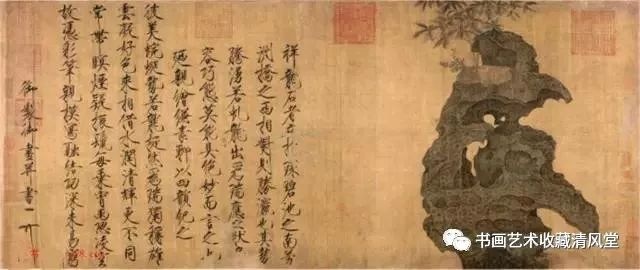 祥龍石者立於環碧池之南芳
洲橋之西相對則勝瀛也其勢
騰湧若虯龍出為瑞應之狀奇
容巧態莫能具絕妙而言之也
廼親繪縑素聊以四韻紀之
彼美蜿蜒勢若龍挺然為瑞獨稱雄
雲凝好色來相借水潤清輝更不同
常帶暝煙疑振鬣每乘宵雨恐凌空
故憑彩筆親模寫融結功深未易窮
御製御畫并書
书画艺术收藏清风堂